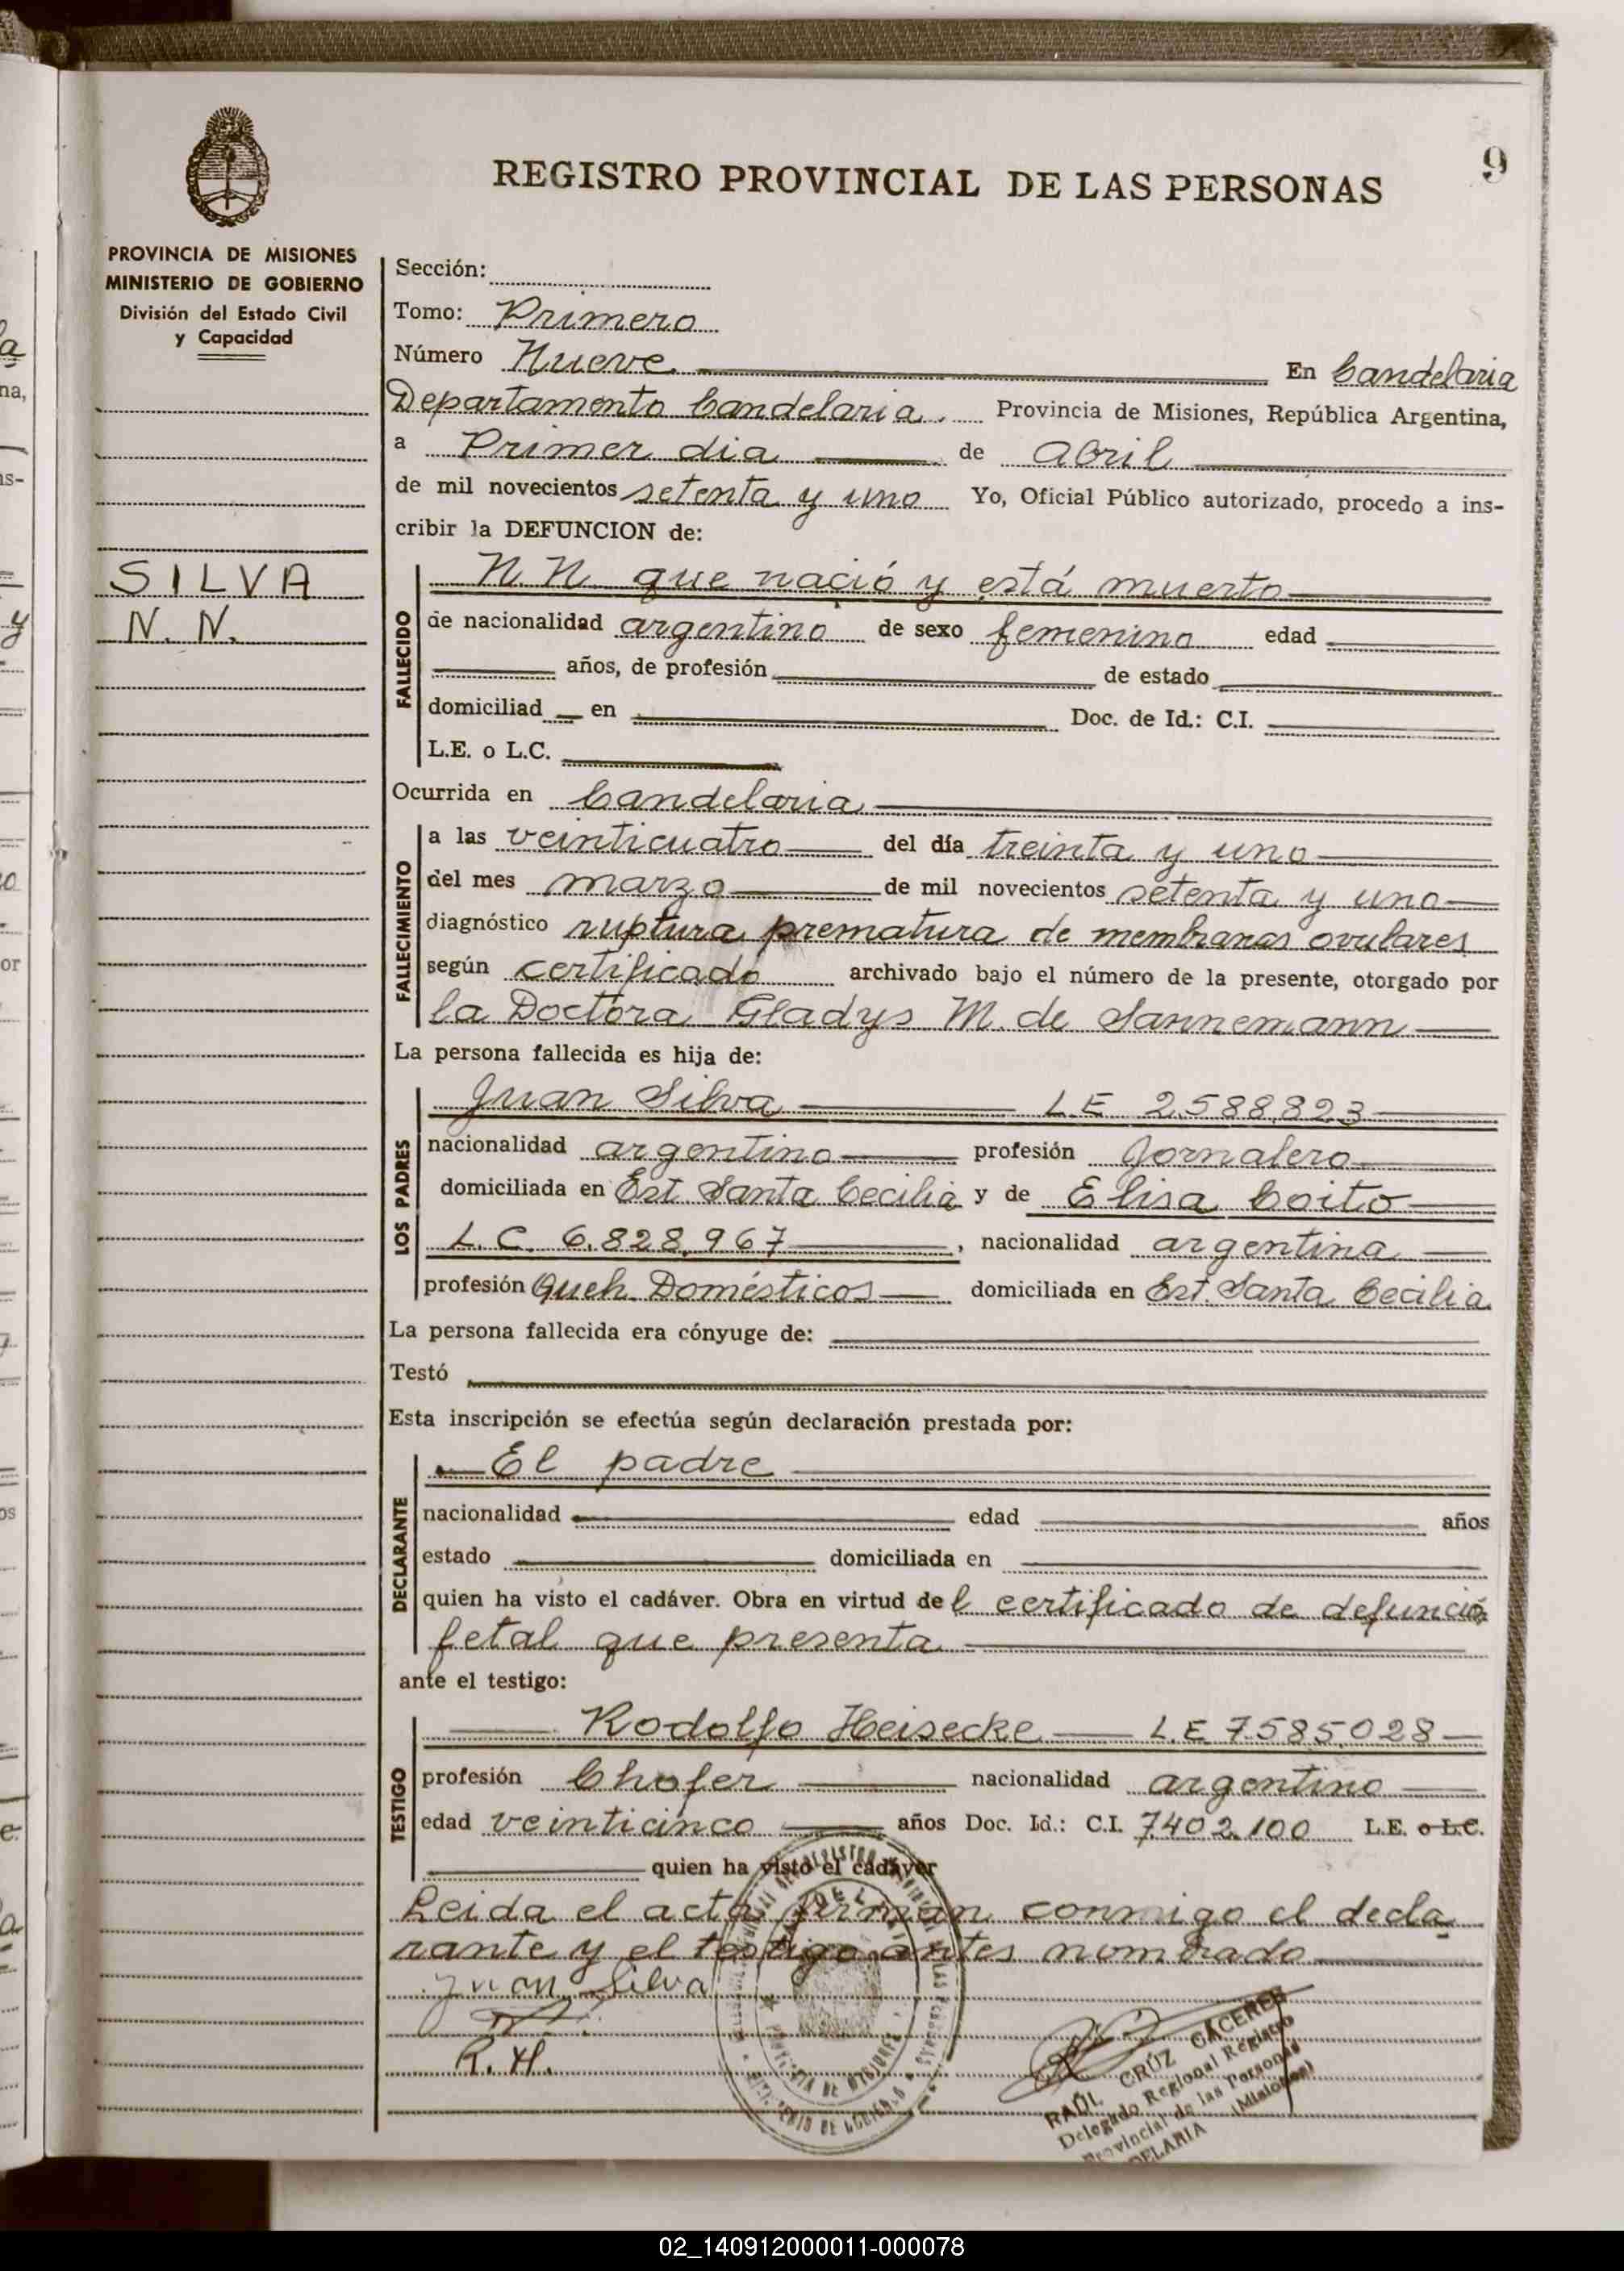 9
REGISTRO PROVINCIAL DE LAS PERSONAS
PROVINCIA DE MISIONES
MINISTERIO DE GOBIERNO
División del Estado Civil
y Capacidad
SILVA
N. N.
Sección:
Tomo: Primero
Número Nueve En Candelaria
Departamento Candelaria. Provincia de Misiones, República Argentina,
a Primer dia de abril
de mil novecientos setenta y uno Yo, Oficial Público autorizado, procedo a ins-
cribir la DEFUNCION de:
FALLECIDO
N. N. que nació y está muerto
de nacionalidad argentino de sexo femenino edad
años, de profesión de estado
domiciliad en Doc. de Id.: C.I.
L.E. o L.C.
Ocurrida en Candelaria
FALLECIMIENTO
a las veinticuatro del día treinta y uno
del mes marzo de mil novecientos setenta y uno
diagnóstico ruptura prematura de membranas ovulares
según certificado archivado bajo el número de la presente, otorgado por
la Doctora Gladys M. de Sannemann
La persona fallecida es hija de:
LOS PADRES
Juan Silva L.E 2.588.823
nacionalidad argentino profesión Jornalero
domiciliada en Est. Santa Cecilia y de Elisa Coito
L.C. 6.828.967, nacionalidad argentina
profesión Queh. Domésticos domiciliada en Est. Santa Cecilia
La persona fallecida era cónyuge de:
Testó
Esta inscripción se efectúa según declaración prestada por:
DECLARANTE
El padre
nacionalidad edad años
estado domiciliada en
quien ha visto el cadáver. Obra en virtud del certificado de defunción
fetal que presenta
ante el testigo:
TESTIGO
Rodolfo Heisecke L.E 7.585.028
profesión Chofer nacionalidad argentino
edad veinticinco años Doc. Id.: C.I. 7.402.100 L.E. o L.C.
quien ha visto el cadáver
Leida el acta firman conmigo el decla
rante y el testigo antes nombrado
Juan Silva
R. H.
RAÚL CRÚZ CÁCERES
Delegado Regional Registro
Provincial de las Personas
DELARIA (Misiones)
02_140912000011-000078